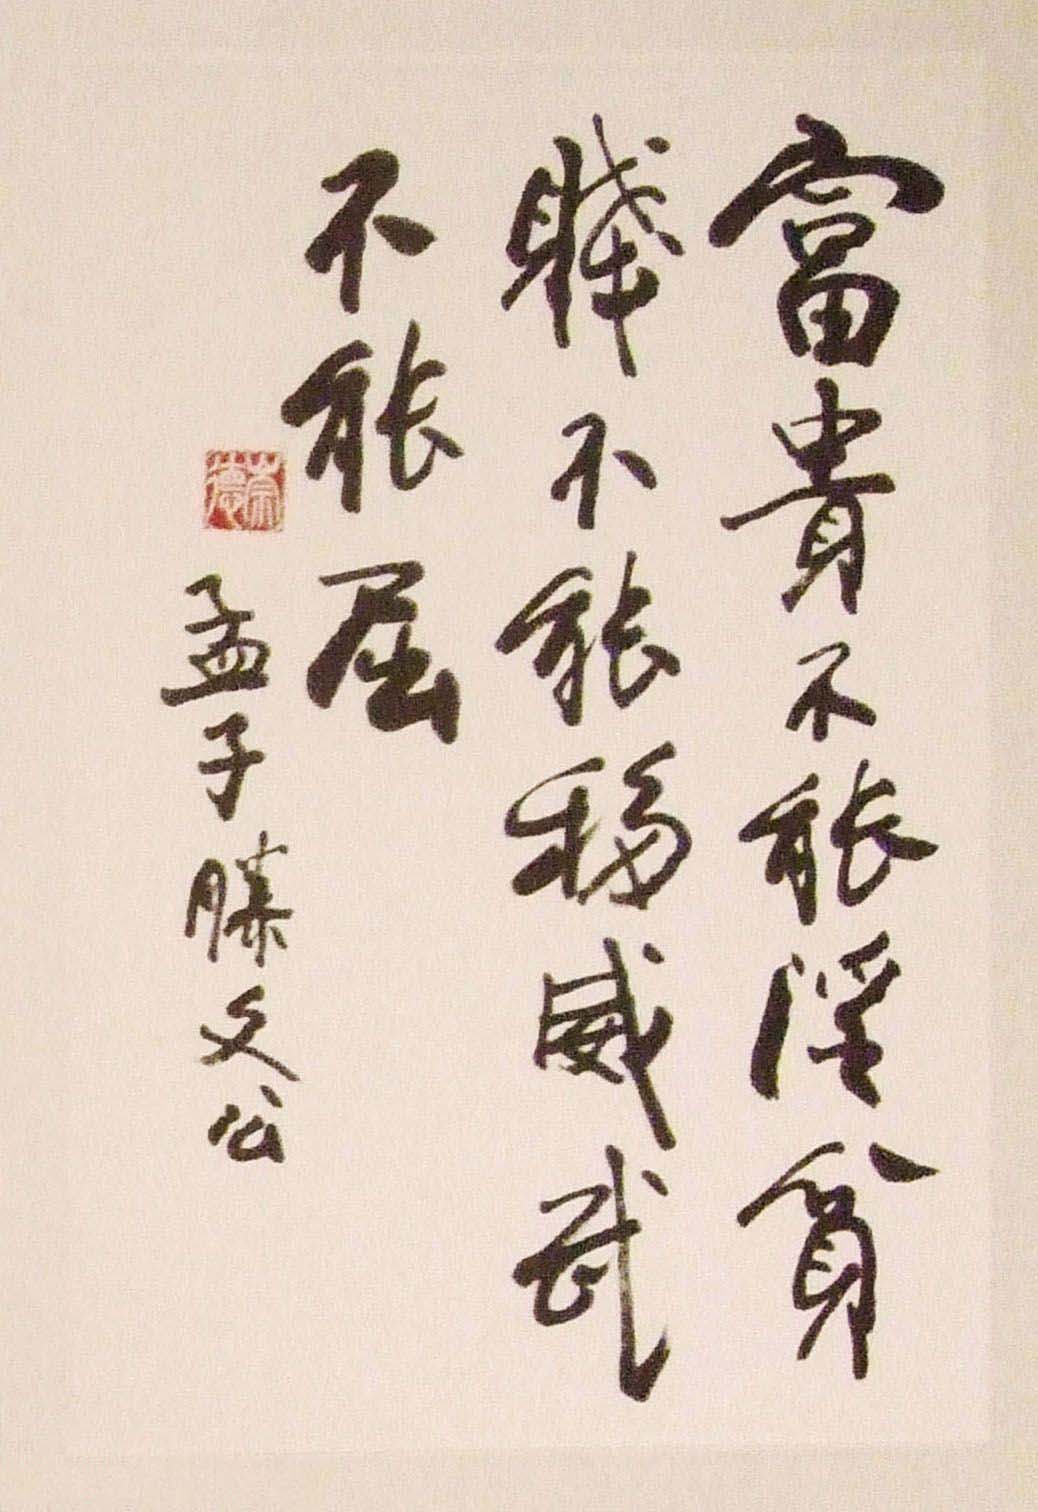 富貴不能淫貧
賤不能移威武
不能屈
孟子滕文公
崇德